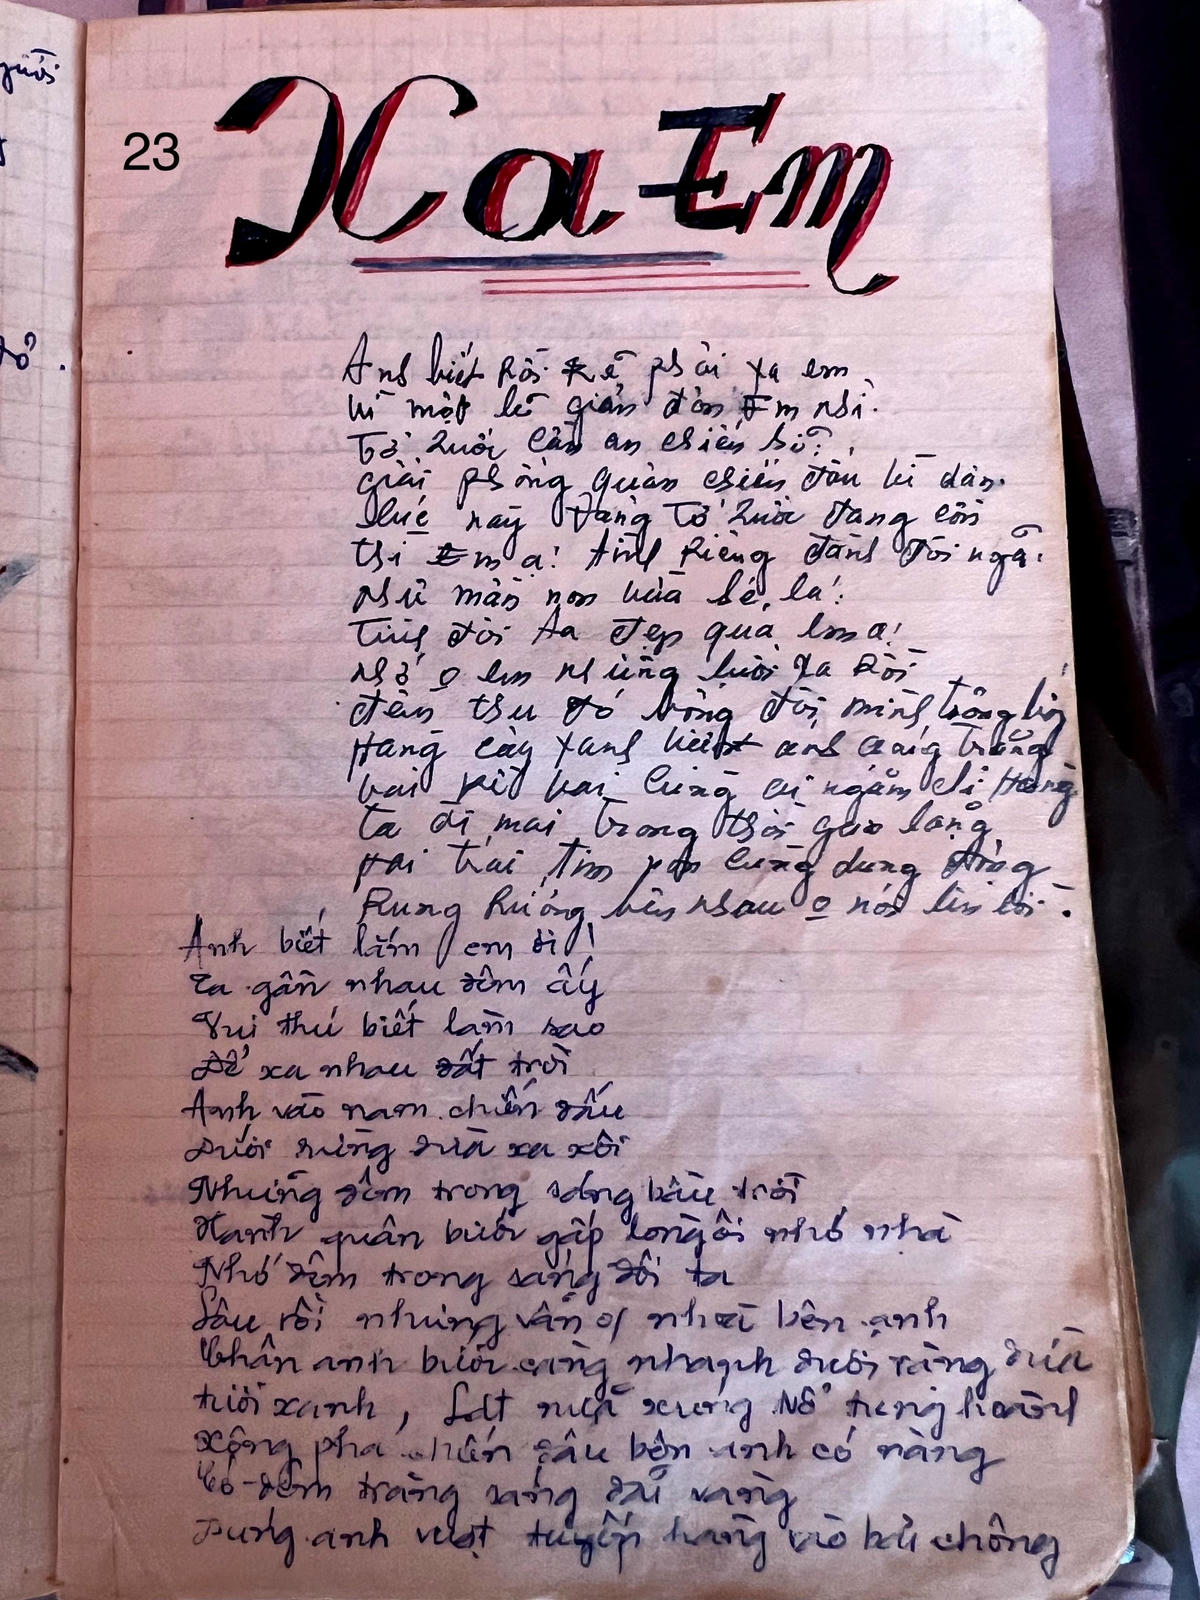 guời
đổ.
23
Xa Em
Anh biết Rồi sẽ phải xa em
Vì một lẽ giản đơn Em nhỉ.
Tổ Quốc cần an chiến sĩ.
giải phóng quân chiến đấu vì dân.
Lúc nay Đảng Tổ Quốc đang cần
thì Em ạ! Anh Riêng đành đôi ngã.
như mần non vừa hé lá!
Tình đời ta đẹp quá em ạ!
nhớ o em những buổi xa Rồi
đêm thu đó bóng đôi mình
Hàng cây xanh biếc ánh trăng
vai kề vai cùng ai ngắm chị Hằng
ta đi mai trong thời gian lặng
hai trái tim cùng dung động
Rung Rưởng bên nhau o nói lên lời.
Anh biết lắm em ơi!
Ta gần nhau đêm ấy
Vui thú biết làm sao
Để xa nhau đất trời
Anh vào nam chiến đấu
Dưới rừng dừa xa xôi
Những đêm trong sáng bầu trời
Hành quân bước gấp lòng ôi nhớ nhà
Nhớ đêm trong sáng đôi ta
Lâu rồi nhưng vẫn bên anh
Chân anh bước càng nhanh dưới rặng dừa
tươi xanh, nổ tung hoành
Xông pha chiến đấu bên anh có nàng
Có đêm trăng sáng vàng
anh vượt tuyến băng vào chông